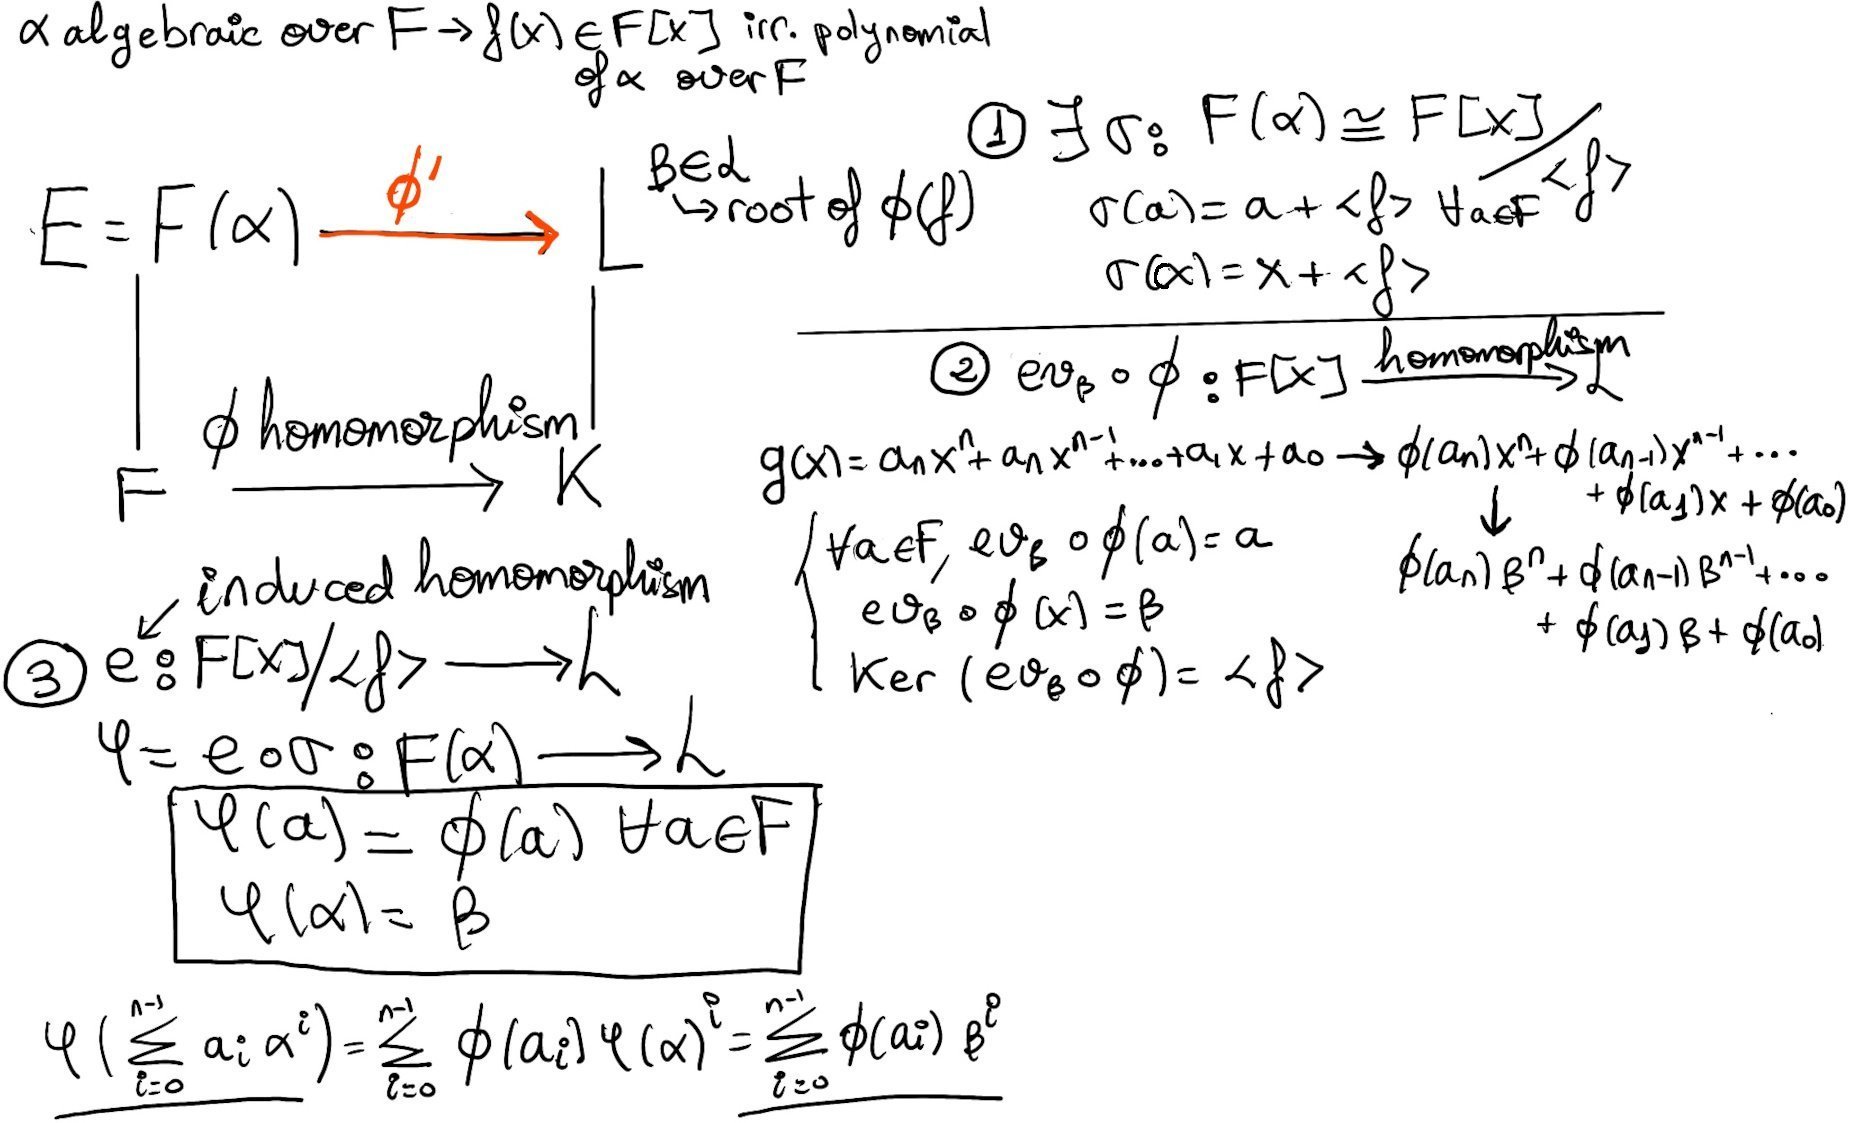 α algebraic over F → f(x) ∈ F[x] irr. polynomial
of α over F
E = F(α)
ϕ'
L
β∈L
↳ root of ϕ(f)
ϕ homomorphism
F
K
① ∃ σ: F(α) ≅ F[x]/<f>
σ(a) = a + <f> ∀a∈F
σ(α) = x + <f>
② evᵦ ∘ ϕ : F[x] homomorphism → L
g(x) = aₙxⁿ + aₙxⁿ⁻¹ + ... + a₁x + a₀ → ϕ(aₙ)xⁿ + ϕ(aₙ₋₁)xⁿ⁻¹ + ...
+ ϕ(a₁)x + ϕ(a₀)
↓
ϕ(aₙ)βⁿ + ϕ(aₙ₋₁)βⁿ⁻¹ + ...
+ ϕ(a₁)β + ϕ(a₀)
∀a∈F, evᵦ ∘ ϕ(a) = a
evᵦ ∘ ϕ(x) = β
Ker (evᵦ ∘ ϕ) = <f>
induced homomorphism
③ e : F[x]/<f> → L
φ = e∘σ : F(α) → L
φ(a) = ϕ(a) ∀a∈F
φ(α) = β
φ(∑ᵢ₌₀ⁿ⁻¹ aᵢ αⁱ) = ∑ᵢ₌₀ⁿ⁻¹ ϕ(aᵢ) φ(α)ⁱ = ∑ᵢ₌₀ⁿ⁻¹ ϕ(aᵢ) βⁱ